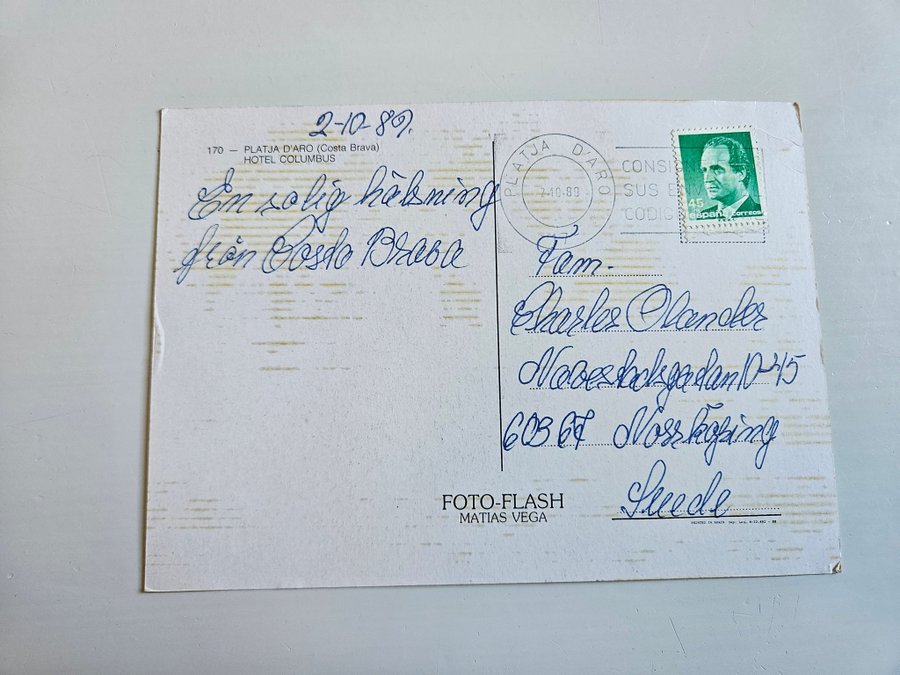 2-10-89.
170 — PLATJA D'ARO (Costa Brava)
HOTEL COLUMBUS
En solig hälsning
från Costa Brava
PLATJA D'ARO
-10-89
CONSI
SUS E
CODIG
45
españa correos
Fam.
Charles Olander
10-45
603 67 Norrköping
Suede
FOTO-FLASH
MATIAS VEGA
PRINTED IN SPAIN